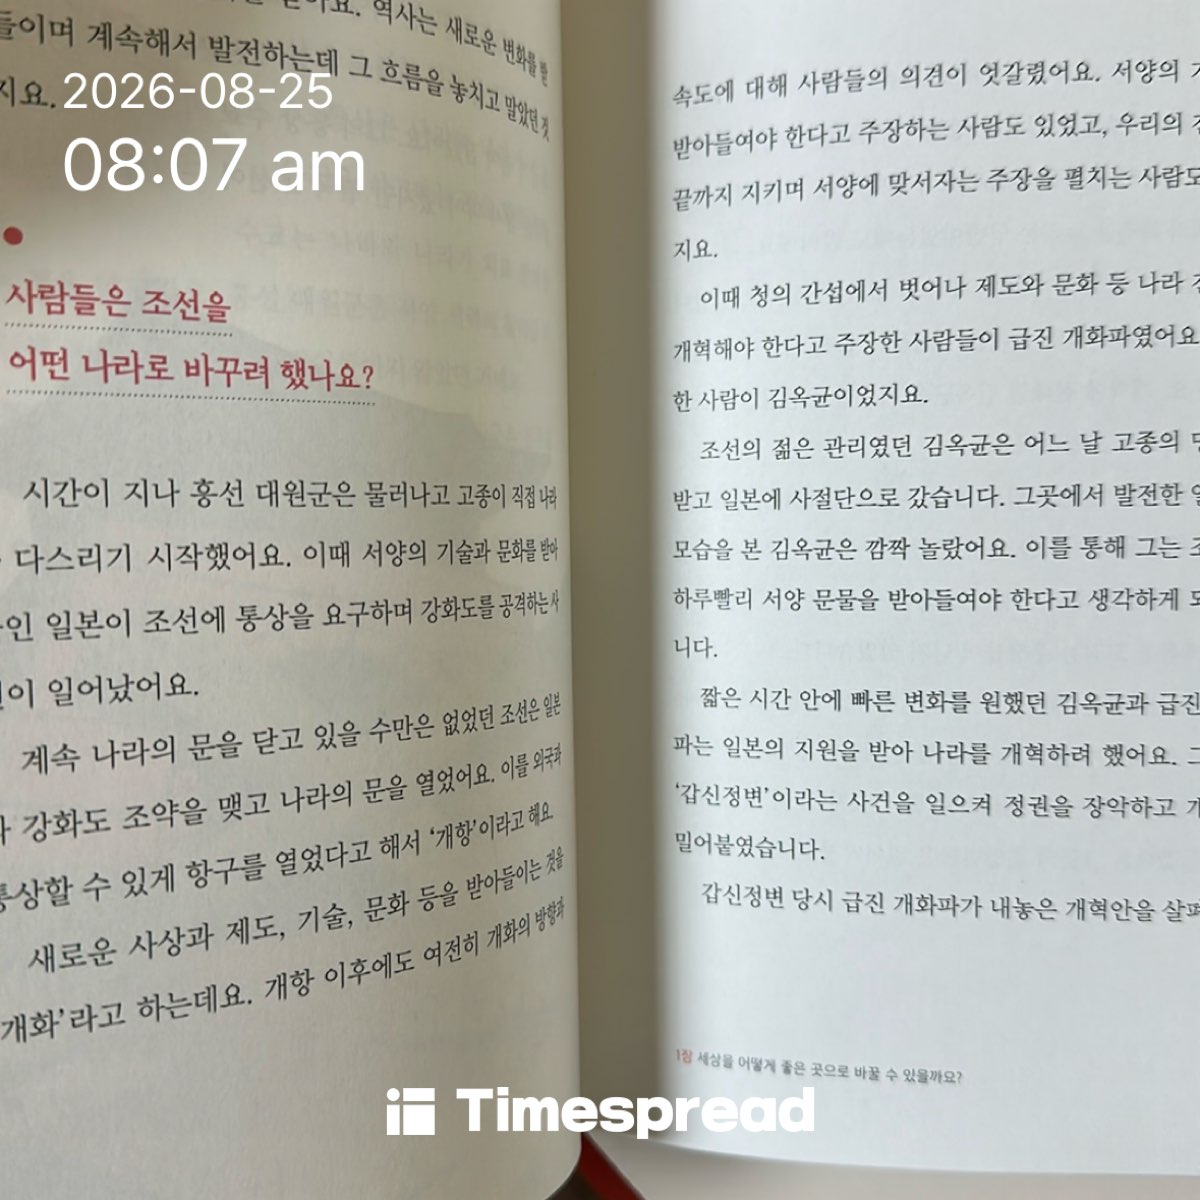 역사는 새로운 변화를 받
들이며 계속해서 발전하는데 그 흐름을 놓치고 말았던 것
지요.
2026-08-25
08:07 am
사람들은 조선을
어떤 나라로 바꾸려 했나요?
시간이 지나 흥선 대원군은 물러나고 고종이 직접 나라
다스리기 시작했어요. 이때 서양의 기술과 문화를 받아
인 일본이 조선에 통상을 요구하며 강화도를 공격하는 사
이 일어났어요.
계속 나라의 문을 닫고 있을 수만은 없었던 조선은 일본
강화도 조약을 맺고 나라의 문을 열었어요. 이를 외국과
통상할 수 있게 항구를 열었다고 해서 ‘개항’이라고 해요.
새로운 사상과 제도, 기술, 문화 등을 받아들이는 것을
개화’라고 하는데요. 개항 이후에도 여전히 개화의 방향과
속도에 대해 사람들의 의견이 엇갈렸어요. 서양의
받아들여야 한다고 주장하는 사람도 있었고, 우리의
끝까지 지키며 서양에 맞서자는 주장을 펼치는 사람도
지요.
이때 청의 간섭에서 벗어나 제도와 문화 등 나라
개혁해야 한다고 주장한 사람들이 급진 개화파였어요
한 사람이 김옥균이었지요.
조선의 젊은 관리였던 김옥균은 어느 날 고종의
받고 일본에 사절단으로 갔습니다. 그곳에서 발전한
모습을 본 김옥균은 깜짝 놀랐어요. 이를 통해 그는
하루빨리 서양 문물을 받아들여야 한다고 생각하게
니다.
짧은 시간 안에 빠른 변화를 원했던 김옥균과 급진
파는 일본의 지원을 받아 나라를 개혁하려 했어요.
‘갑신정변’이라는 사건을 일으켜 정권을 장악하고
밀어붙였습니다.
갑신정변 당시 급진 개화파가 내놓은 개혁안을 살펴
1장 세상을 어떻게 좋은 곳으로 바꿀 수 있을까요?
Timespread